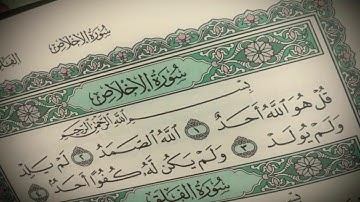 سُورَةُ الإِخْلَاصِ
الفَلَق
سُورَةُ الإِخْلَاصِ
بِسْمِ اللَّهِ الرَّحْمَٰنِ الرَّحِيمِ
قُلْ هُوَ اللَّهُ أَحَدٌ ١ اللَّهُ الصَّمَدُ ٢ لَمْ يَلِدْ
وَلَمْ يُولَدْ ٣ وَلَمْ يَكُن لَّهُ كُفُوًا أَحَدٌ ٤
سُورَةُ الفَلَقِ